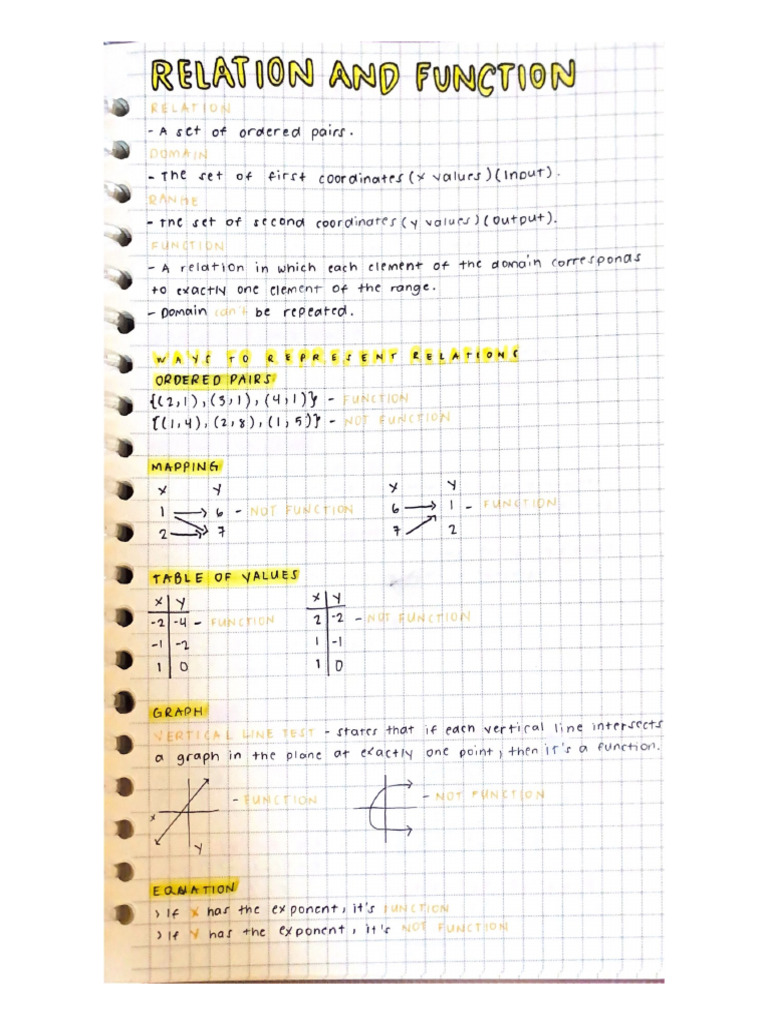 RELATION AND FUNCTION
RELATION
- A set of ordered pairs.
DOMAIN
- The set of first coordinates (x values) (input).
RANGE
- The set of second coordinates (y values) (output).
FUNCTION
- A relation in which each element of the domain corresponds
to exactly one element of the range.
- Domain can't be repeated.
WAYS TO REPRESENT RELATIONS
ORDERED PAIRS
{(2,1), (3,1), (4,1)} - FUNCTION
{(1,4), (2,8), (1,5)} - NOT FUNCTION
MAPPING
X Y X Y
1 → 6 - NOT FUNCTION 6 → 1 - FUNCTION
2 → 7 7 2
TABLE OF VALUES
X Y X Y
-2 -4 - FUNCTION 2 -2 - NOT FUNCTION
-1 -2 1 -1
1 0 1 0
GRAPH
VERTICAL LINE TEST - states that if each vertical line intersects
a graph in the plane at exactly one point, then it's a function.
- FUNCTION - NOT FUNCTION
X
Y
EQUATION
> If X has the exponent, it's FUNCTION
> If Y has the exponent, it's NOT FUNCTION